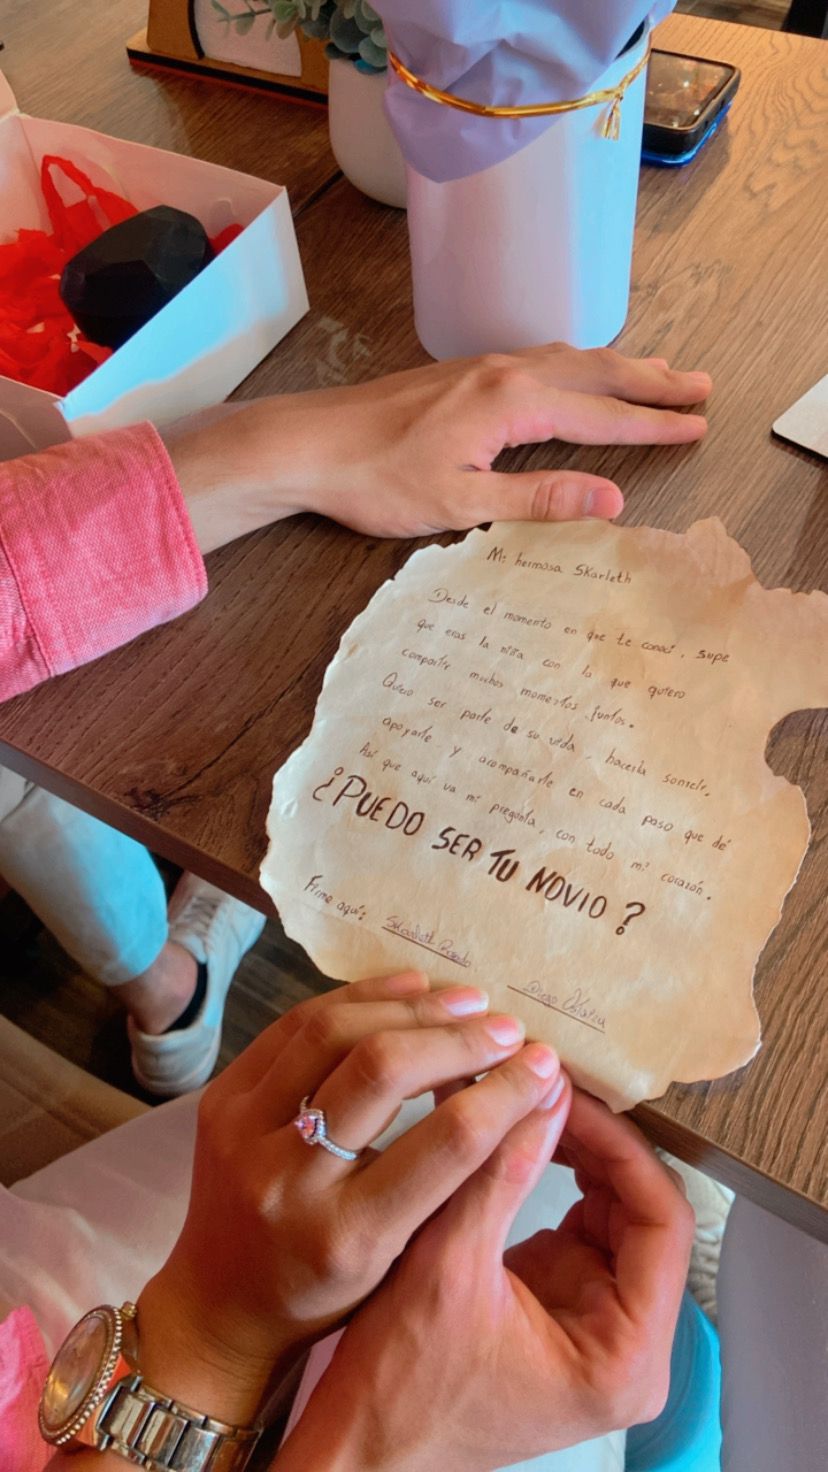 Mi hermosa Skarleth
Desde el momento en que te conocí, supe
que eras la niña con la que quiero
compartir muchos momentos juntos.
Quiero ser parte de su vida, hacerla sonreír,
apoyarle y acompañarle en cada paso que dé
Así que aquí va mi pregunta, con todo mi corazón.
¿PUEDO SER TU NOVIO?
Firme aquí: Skarleth
Diego